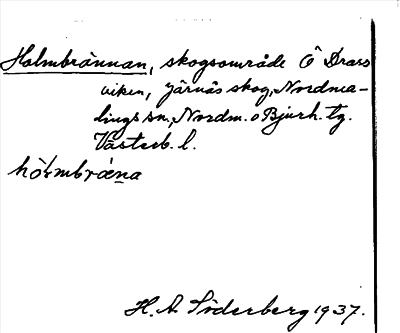 Holmbrännan, skogsområde Ö Drars
viken, Järnäs skog, Nordma-
lings sn, Nordm. o Bjurh. tg.
Västerb. l.
hòłmbrǽna
H. A. Söderberg 1937.